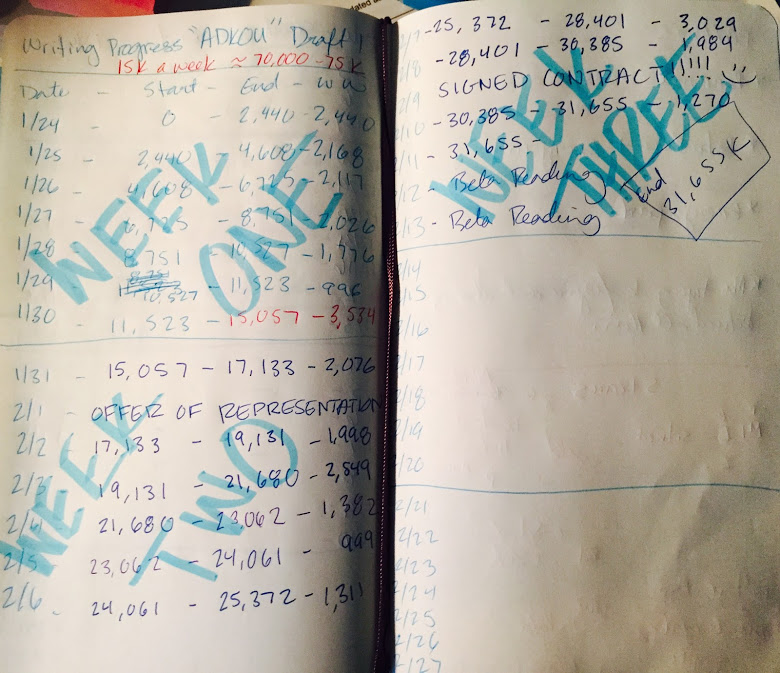 Writing Progress "ADKOU" Draft 1
15K a week ≈ 70,000-75K
Date - Start - End - WW
1/24 - 0 - 2,440 - 2,440
1/25 - 2,440 - 4,608 - 2,168
1/26 - 4,608 - 6,725 - 2,117
1/27 - 6,725 - 8,751 - 2,026
1/28 - 8,751 - 10,527 - 1,776
1/29 - 10,527 - 11,523 - 996
1/30 - 11,523 - 15,057 - 3,534
WEEK ONE
1/31 - 15,057 - 17,133 - 2,076
2/1 - OFFER OF REPRESENTATION
2/2 - 17,133 - 19,131 - 1,998
2/3 - 19,131 - 21,680 - 2,549
2/4 - 21,680 - 23,062 - 1,382
2/5 - 23,062 - 24,061 - 999
2/6 - 24,061 - 25,372 - 1,311
WEEK TWO
2/7 - 25,372 - 28,401 - 3,029
2/8 - 28,401 - 30,385 - 1,984
2/9 SIGNED CONTRACT!!!!!
2/10 - 30,385 - 31,655 - 1,270
2/11 - 31,655 -
2/12 - Beta Reading
2/13 - Beta Reading
WEEK THREE
End 31,655K
2/14
2/15
2/16
2/17
2/18
2/19
2/20
2/21
2/22
2/23
2/24
2/25
2/26
2/27